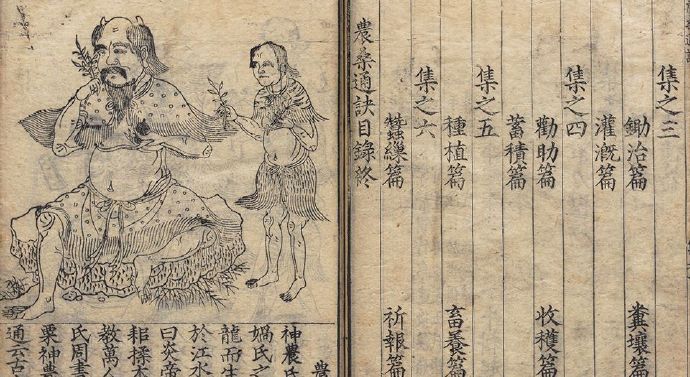 集之三
鋤治篇 糞壤篇
灌溉篇
集之四
勸助篇 收穫篇
蓄積篇
集之五
種植篇 畜養篇
集之六
蠶繅篇 祈報篇
農桑通訣目錄終
農
神農氏
媧氏之
龍而生
於江水
曰炎帝
耜揉木
教萬人
氏周書
粟神農
通云古